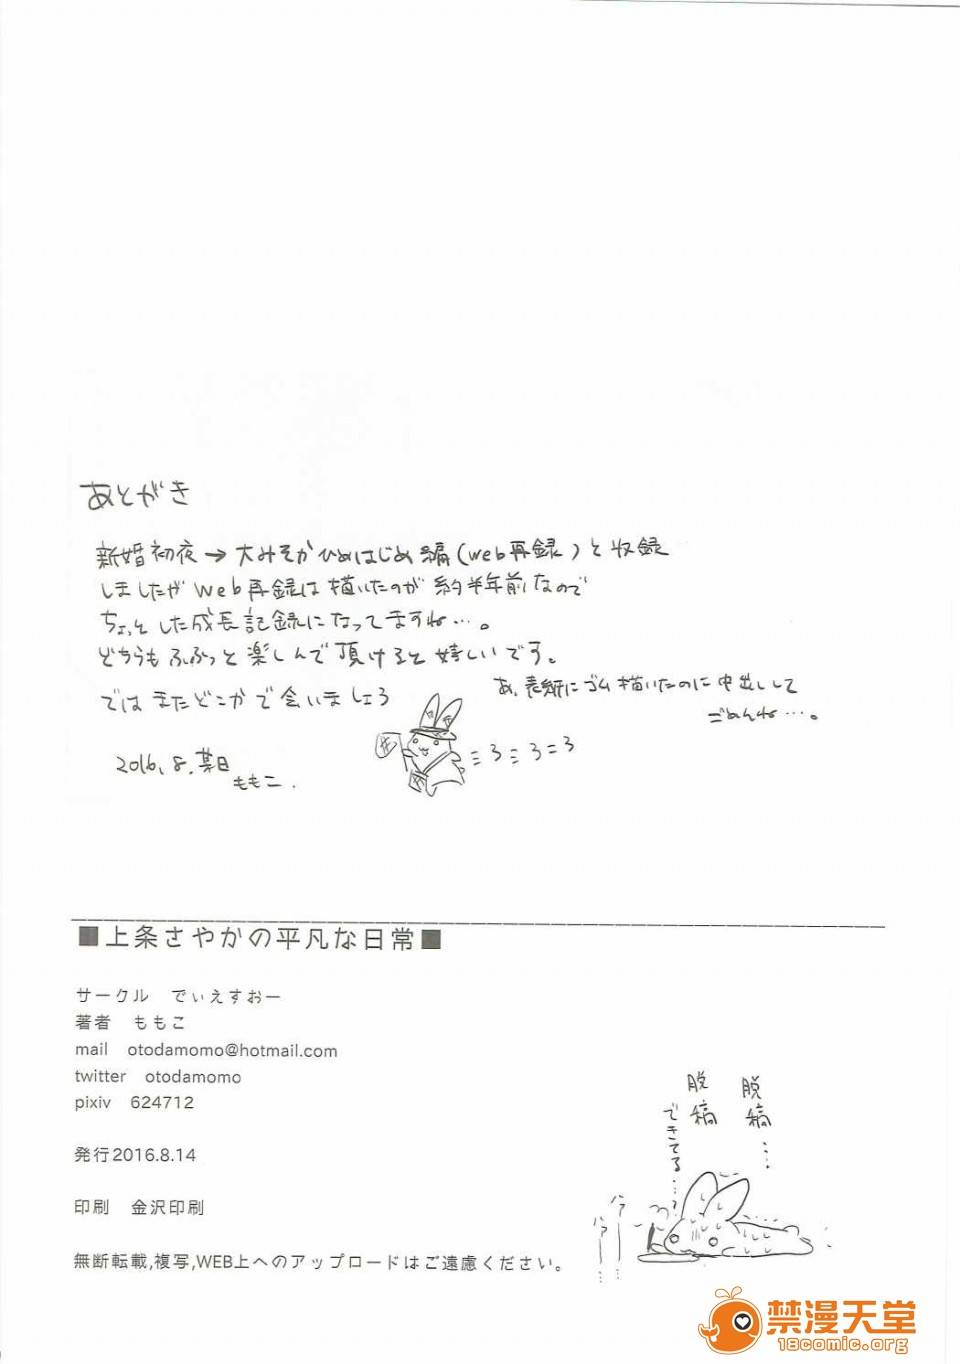 あとがき
新婚初夜→大みそかひめはじめ編(web再録)と収録
しましたがweb再録は描いたのが約半年前なので
ちょっとした成長記録になってますね…。
どちらもふふっと楽しんで頂けると嬉しいです。
ではまたどこかで会いましょう
あ、表紙にゴム描いたのに中出しして
ごめんね…。
2016.8.某日
ももこ.
■上条さやかの平凡な日常■
サークル　でぃえすおー
著者　ももこ
mail　otodamomo@hotmail.com
twitter　otodamomo
pixiv　624712
発行2016.8.14
印刷　金沢印刷
無断転載,複写,WEB上へのアップロードはご遠慮ください。
脱稿…
脱稿
できてる…?
禁漫天堂
18comic.org